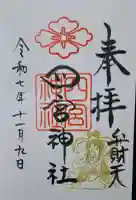 奉拝
弁財天
四宮神社
令和七年十一月九日